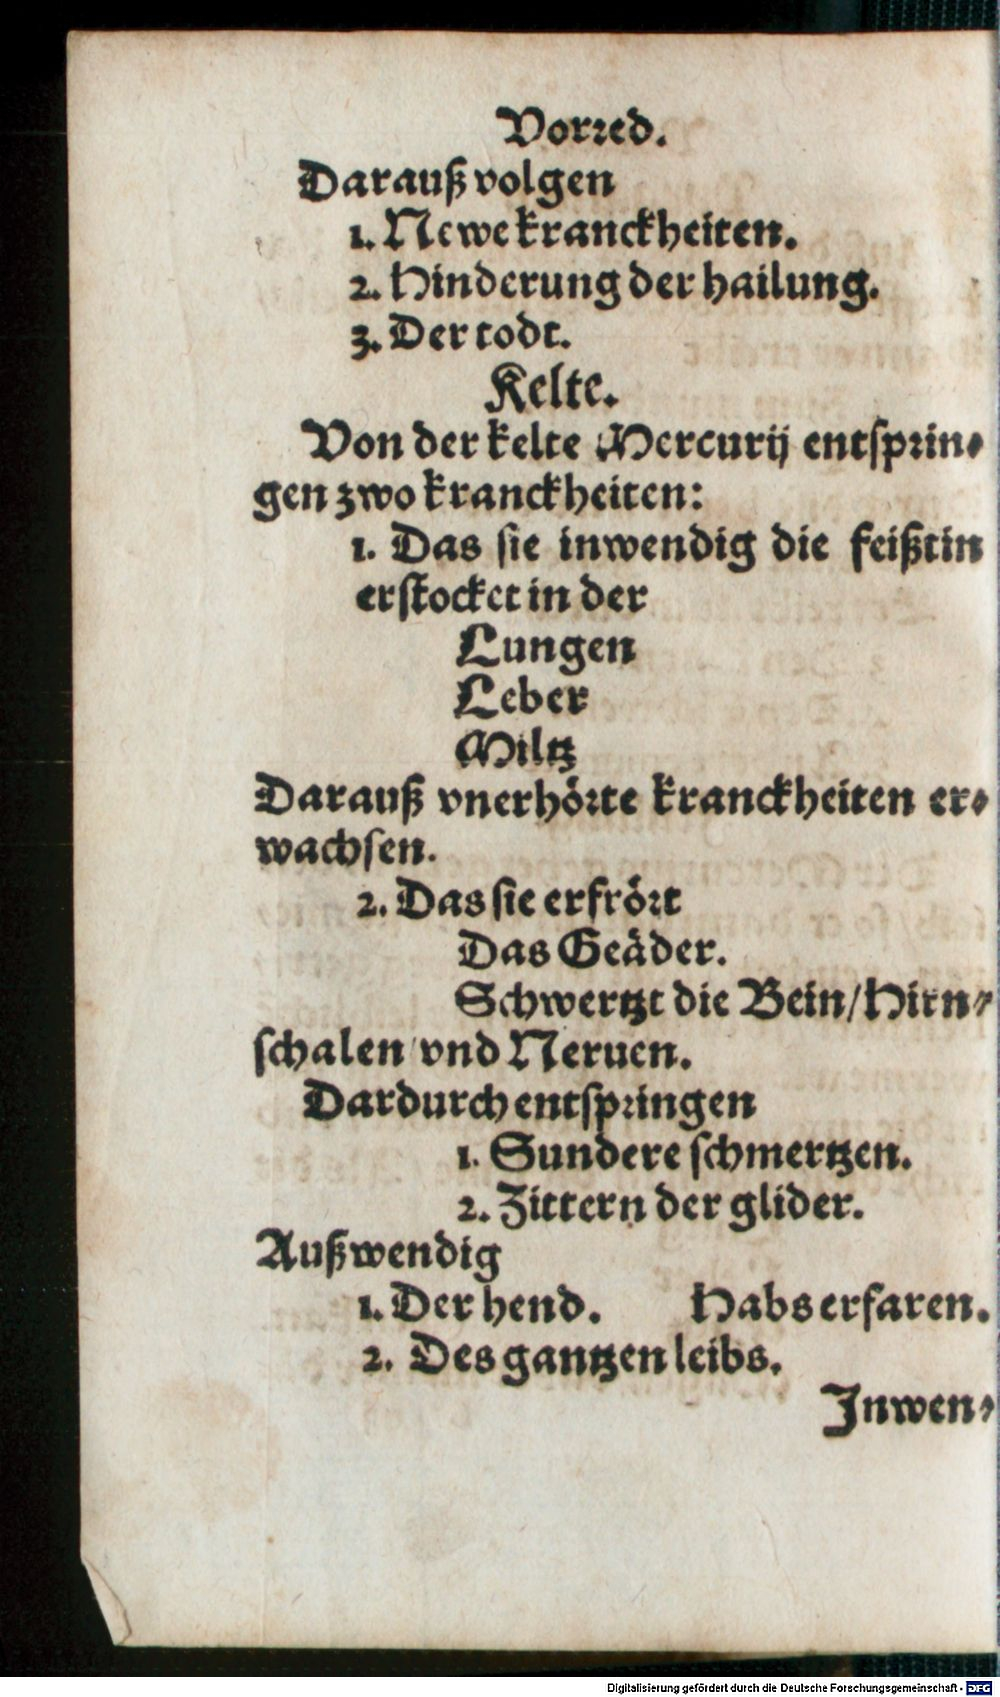 Vorred.
Darauß volgen
1. Newe kranckheiten.
2. Hinderung der hailung.
3. Der todt.
Kelte.
Von der kelte Mercurij entsprin⸗
gen zwo kranckheiten:
1. Das sie inwendig die feißtin
erstocket in der
Lungen
Leber
Miltz
Darauß vnerhörte kranckheiten er⸗
wachsen.
2. Das sie erfrört
Das Geäder.
Schwertzt die Bein/Hirn⸗
schalen vnd Neruen.
Dardurch entspringen
1. Sundere schmertzen.
2. Zittern der glider.
Außwendig
1. Der hend. Habs erfaren.
2. Des gantzen leibs.
Inwen⸗
Digitalisierung gefördert durch die Deutsche Forschungsgemeinschaft - DFG